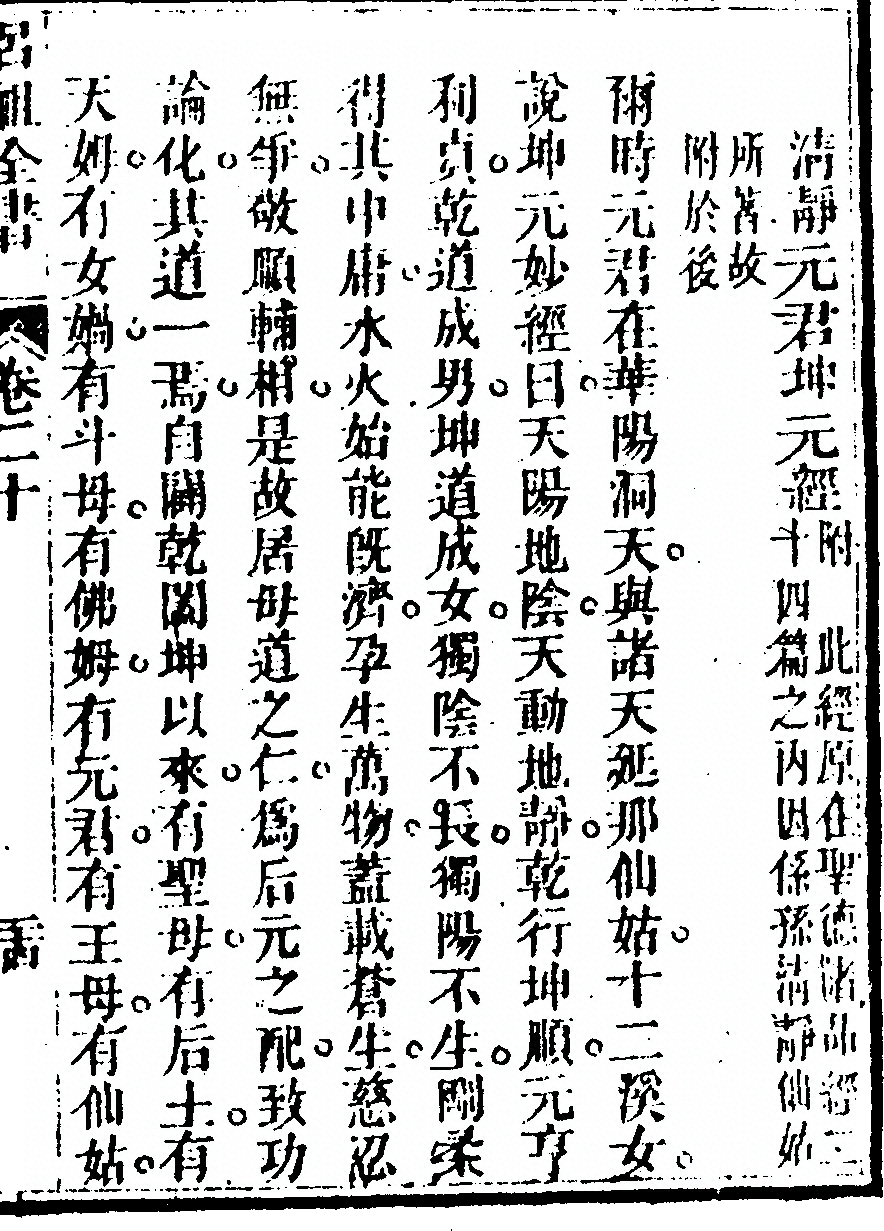 清靜元君坤元經附　此經原在聖德諸品經三
十四篇之內因係孫清靜仙姑
所著故
附於後
爾時元君在華陽洞天與諸天    那仙姑十二溪女
說坤元妙經曰天陽地陰天動地靜乾行坤順元亨
利貞乾道成男坤道成女獨陰不長獨陽不生剛柔
得其中庸水火始能旣濟孕生萬物蓋載蒼生慈忍
無爭敬順輔相是故居母道之仁爲后元之配致功
論化其道一焉自闢乾闔坤以來有聖母有后土有
天姆有女媧有斗母有佛姆有元君有王母有仙姑
呂祖全書
卷二十